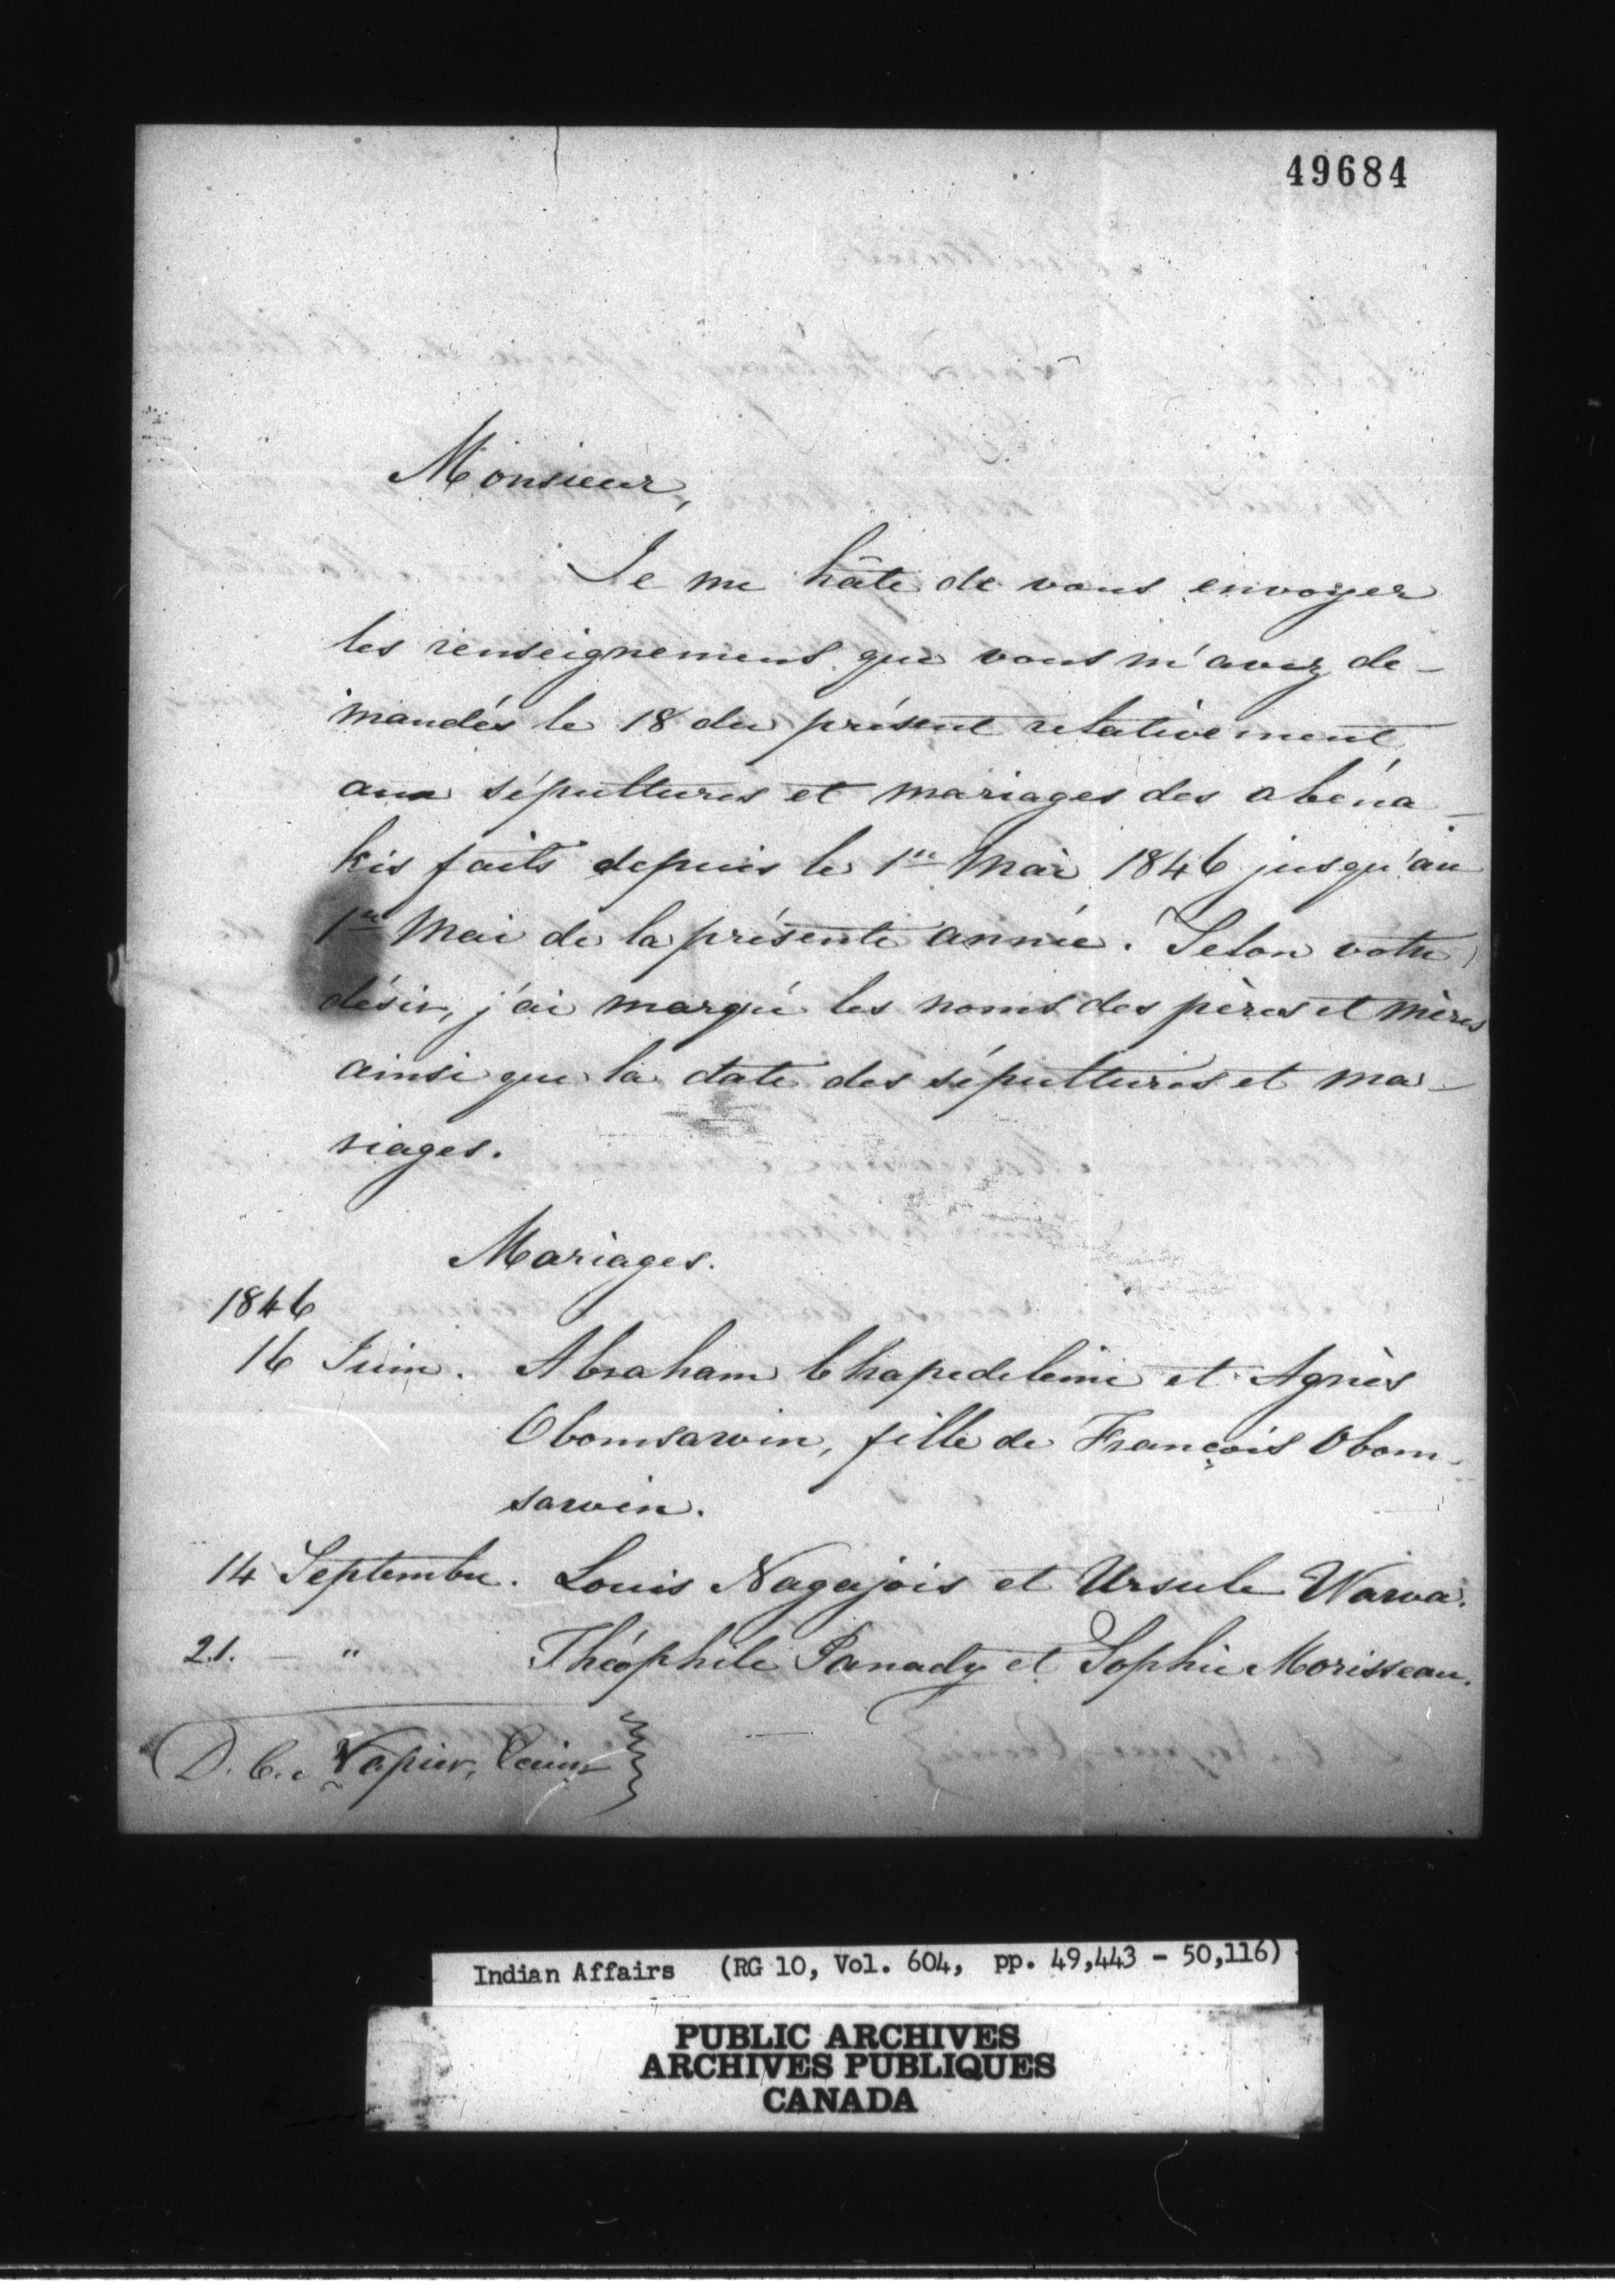 49684
Monsieur,
Je me hâte de vous envoyer
les renseignemens que vous m'avez de-
mandés le 18 du présent relativement
aux sépultures et mariages des abéna-
kis faits depuis le 1er Mai 1846 jusqu'au
1er Mai de la présente année. Selon votre
désir, j'ai marqué les noms des pères et mères
ainsi que la date des sépultures et ma-
riages.
Mariages.
1846
16 Juin. Abraham Chapedeleine et Agnès
Obomsawin, fille de François Obom-
sawin.
14 Septembre. Louis Nagajois et Ursule Wawa.
21. — " Théophile Panady et Sophie Morisseau.
D. C. Napier,
Indian Affairs (RG 10, Vol. 604, pp. 49,443 - 50,116)
PUBLIC ARCHIVES
ARCHIVES PUBLIQUES
CANADA